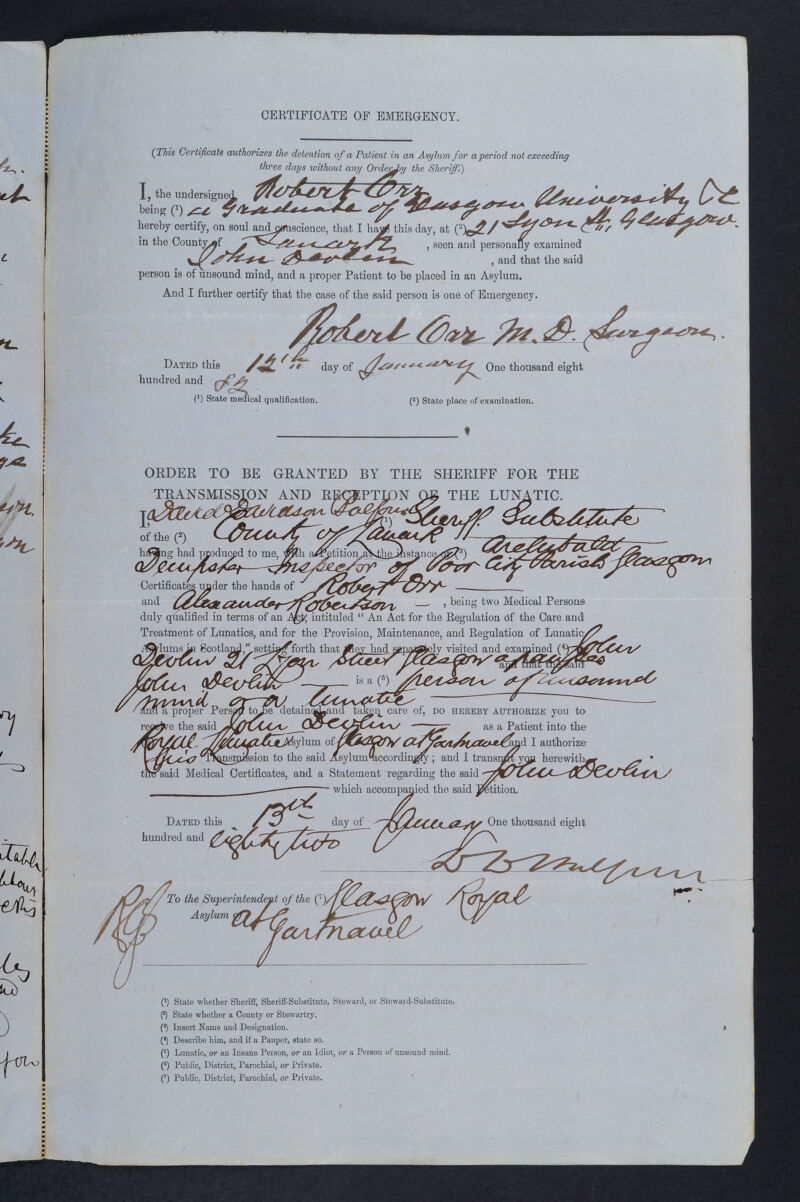 CERTIFICATE OF EMERGENCY.
(This Certificate authorizes the detention of a Patient in an Asylum for a period not exceeding
three days without any Order by the Sheriff.)
I, the undersigned Robert Orr
being (¹) a Graduate of Glasgow University &c
hereby certify, on soul and conscience, that I have this day, at (²) 21 Lyon St. Glasgow.
in the County of Lanark, seen and personally examined
John Devlin, and that the said
person is of unsound mind, and a proper Patient to be placed in an Asylum.
And I further certify that the case of the said person is one of Emergency.
Robert Orr M.D. Surgeon.
DATED this 12th day of January One thousand eight
hundred and 82
(¹) State medical qualification. (²) State place of examination.
ORDER TO BE GRANTED BY THE SHERIFF FOR THE
TRANSMISSION AND RECEPTION OF THE LUNATIC.
I, David Davidson Balfour (¹) Sheriff Substitute
of the (²) County of Lanark
having had produced to me, with a Petition at the instance of (³) Archibald
Dempster Inspector of Poor City Parish Glasgow
Certificates under the hands of Robert Orr
and Alexander Robertson, being two Medical Persons
duly qualified in terms of an Act, intituled "An Act for the Regulation of the Care and
Treatment of Lunatics, and for the Provision, Maintenance, and Regulation of Lunatic
Asylums in Scotland," setting forth that they had separately visited and examined (⁴) John
Devlin 21 Lyon Street Glasgow a pauper and that the said
John Devlin is a (⁵) person of unsound
mind or a lunatic
and a proper Person to be detained and taken care of, DO HEREBY AUTHORIZE you to
receive the said John Devlin as a Patient into the
Royal Lunatic Asylum of Glasgow at Gartnavel and I authorize
his Transmission to the said Asylum accordingly; and I transmit you herewith
the said Medical Certificates, and a Statement regarding the said John Devlin
which accompanied the said Petition.
DATED this 13th day of January One thousand eight
hundred and eighty two
D D Balfour
To the Superintendent of the (⁷) Glasgow Royal
Asylum at Gartnavel
(¹) State whether Sheriff, Sheriff-Substitute, Steward, or Steward-Substitute.
(²) State whether a County or Stewartry.
(³) Insert Name and Designation.
(⁴) Describe him, and if a Pauper, state so.
(⁵) Lunatic, or an Insane Person, or an Idiot, or a Person of unsound mind.
(⁶) Public, District, Parochial, or Private.
(⁷) Public, District, Parochial, or Private.